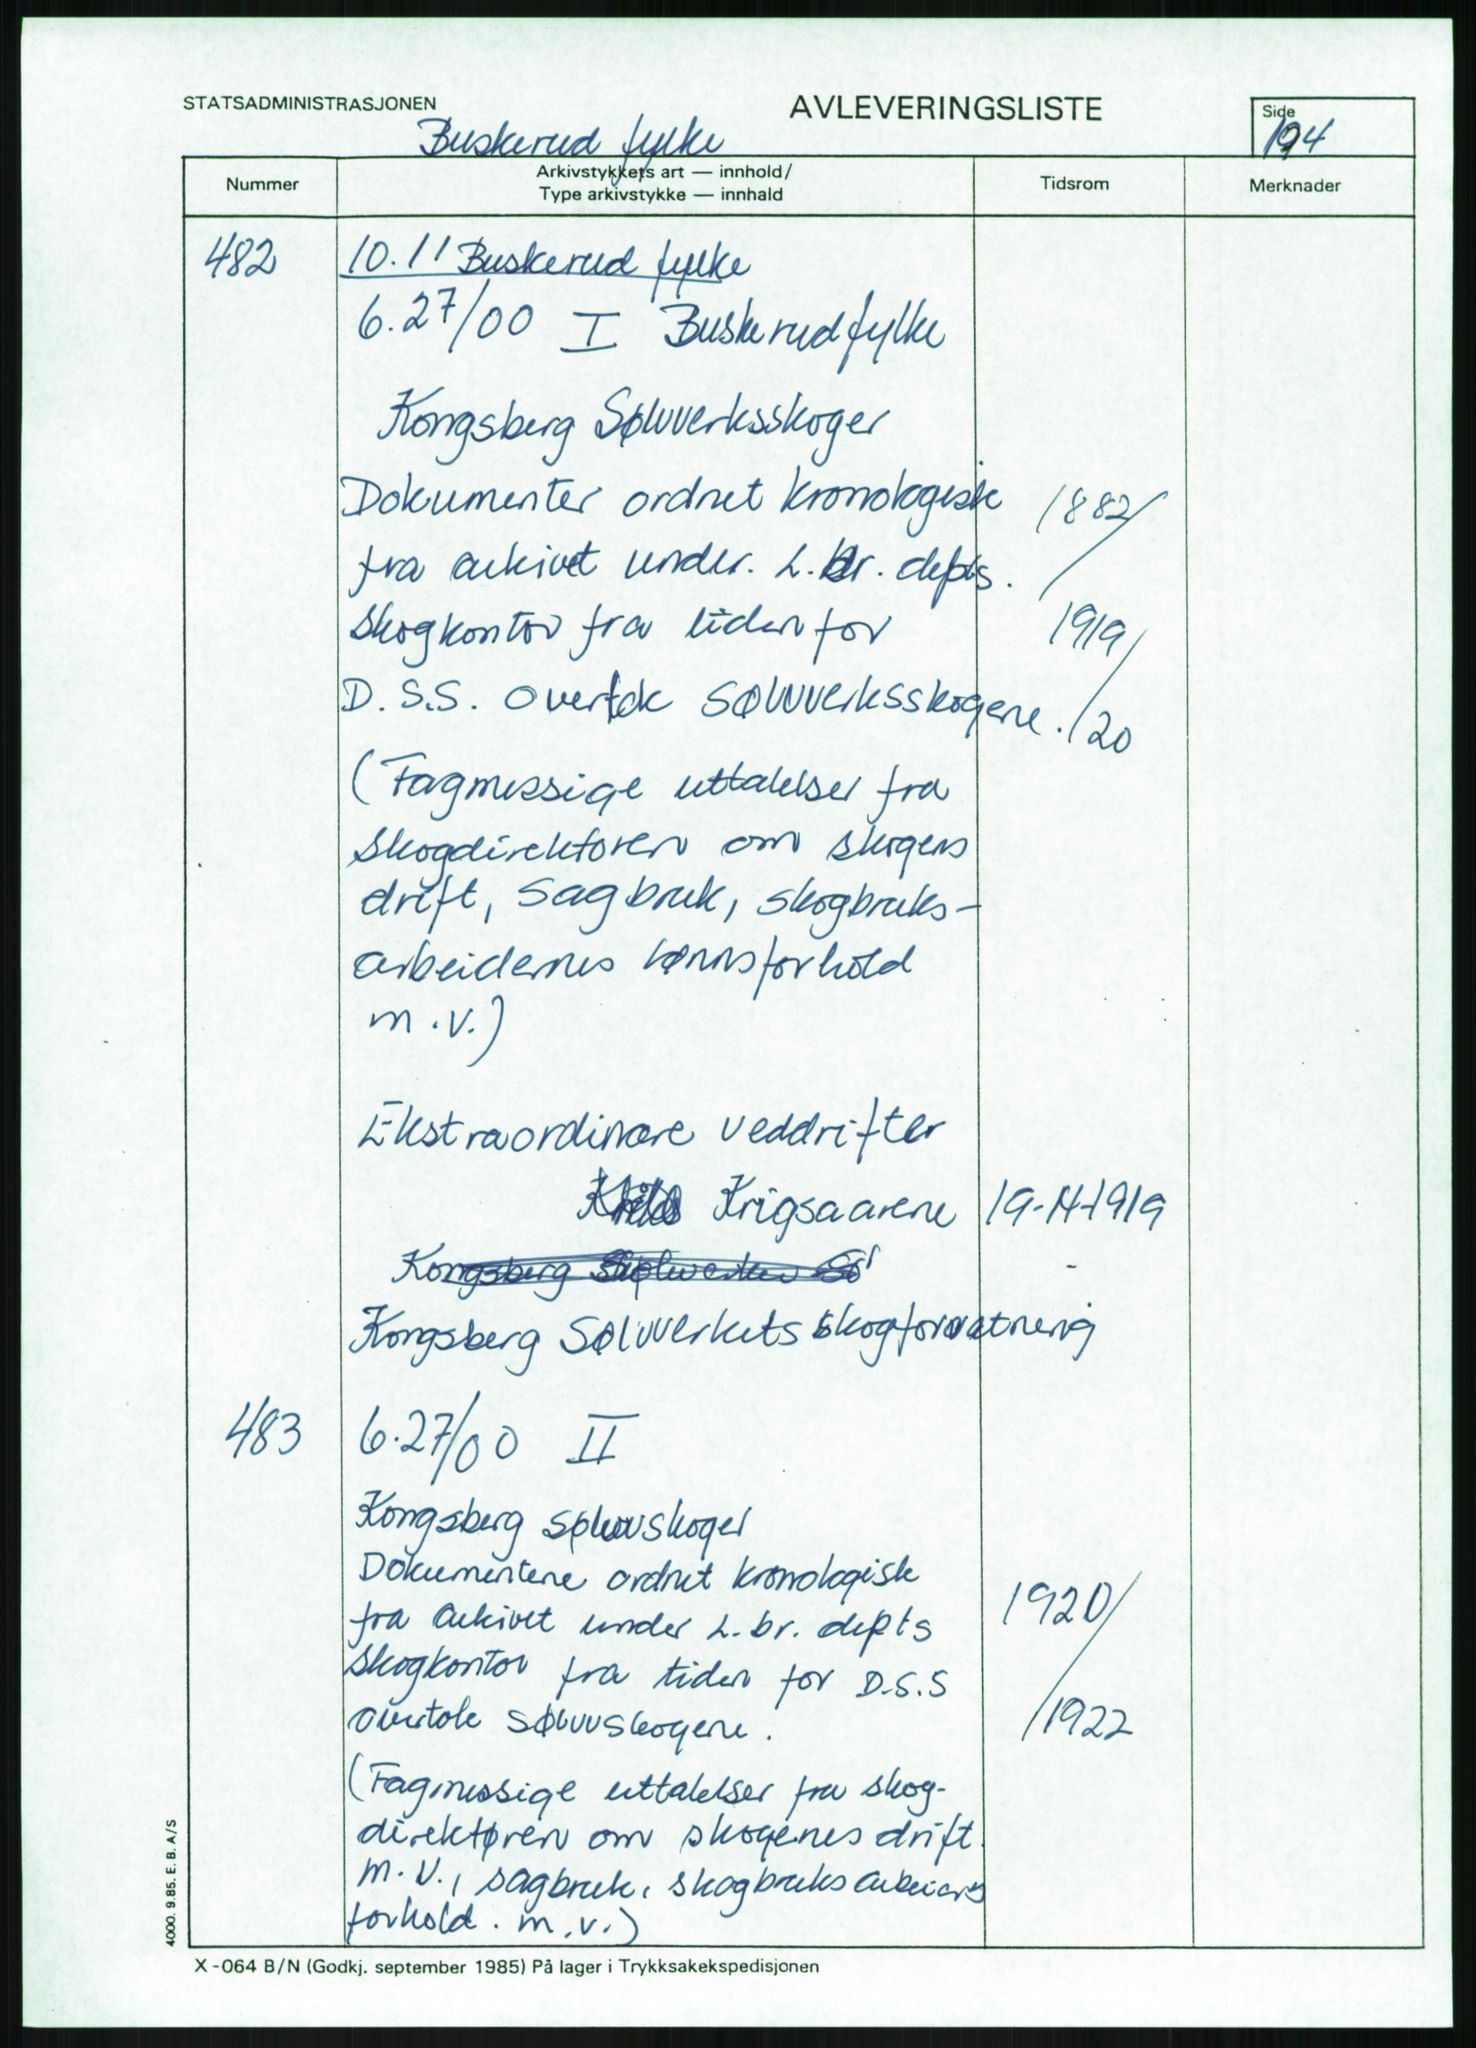 STATSADMINISTRASJONEN
AVLEVERINGSLISTE
Side
194
Buskerud fylke
Nummer
Arkivstykkets art — innhold/
Type arkivstykke — innhald
Tidsrom
Merknader
482
10.11 Buskerud fylke
6.27/00 I Buskerud fylke
Kongsberg Sølvverksskoger
Dokumenter ordnet kronologisk 1882/
fra arkivet under. L.br. depts.
skogkontor fra tiden før 1919/
D.S.S. overtok sølvverksskogene. /20
(Fagmessige uttalelser fra
skogdirektøren om skogens
drift, sagbruk, skogbruks-
arbeidernes lønnsforhold
m.v.)
Ekstraordinære veddrifter
Krigsaarene 19-14-1919
Kongsberg
Kongsberg Sølvverkets skogforvatning
483
6.27/00 II
Kongsberg sølvvskoger
Dokumentene ordnet kronologisk
fra arkivet under L.br. depts 1920/
skogkontor fra tiden før D.S.S
overtok sølvvskogene. /1922
(Fagmessige uttalelser fra skog-
direktøren om skogenes drift.
m.v., sagbruk, skogbruksarbeiders
forhold. m.v.)
4000. 9.85. E. B. A/S
X-064 B/N (Godkj. september 1985) På lager i Trykksakekspedisjonen